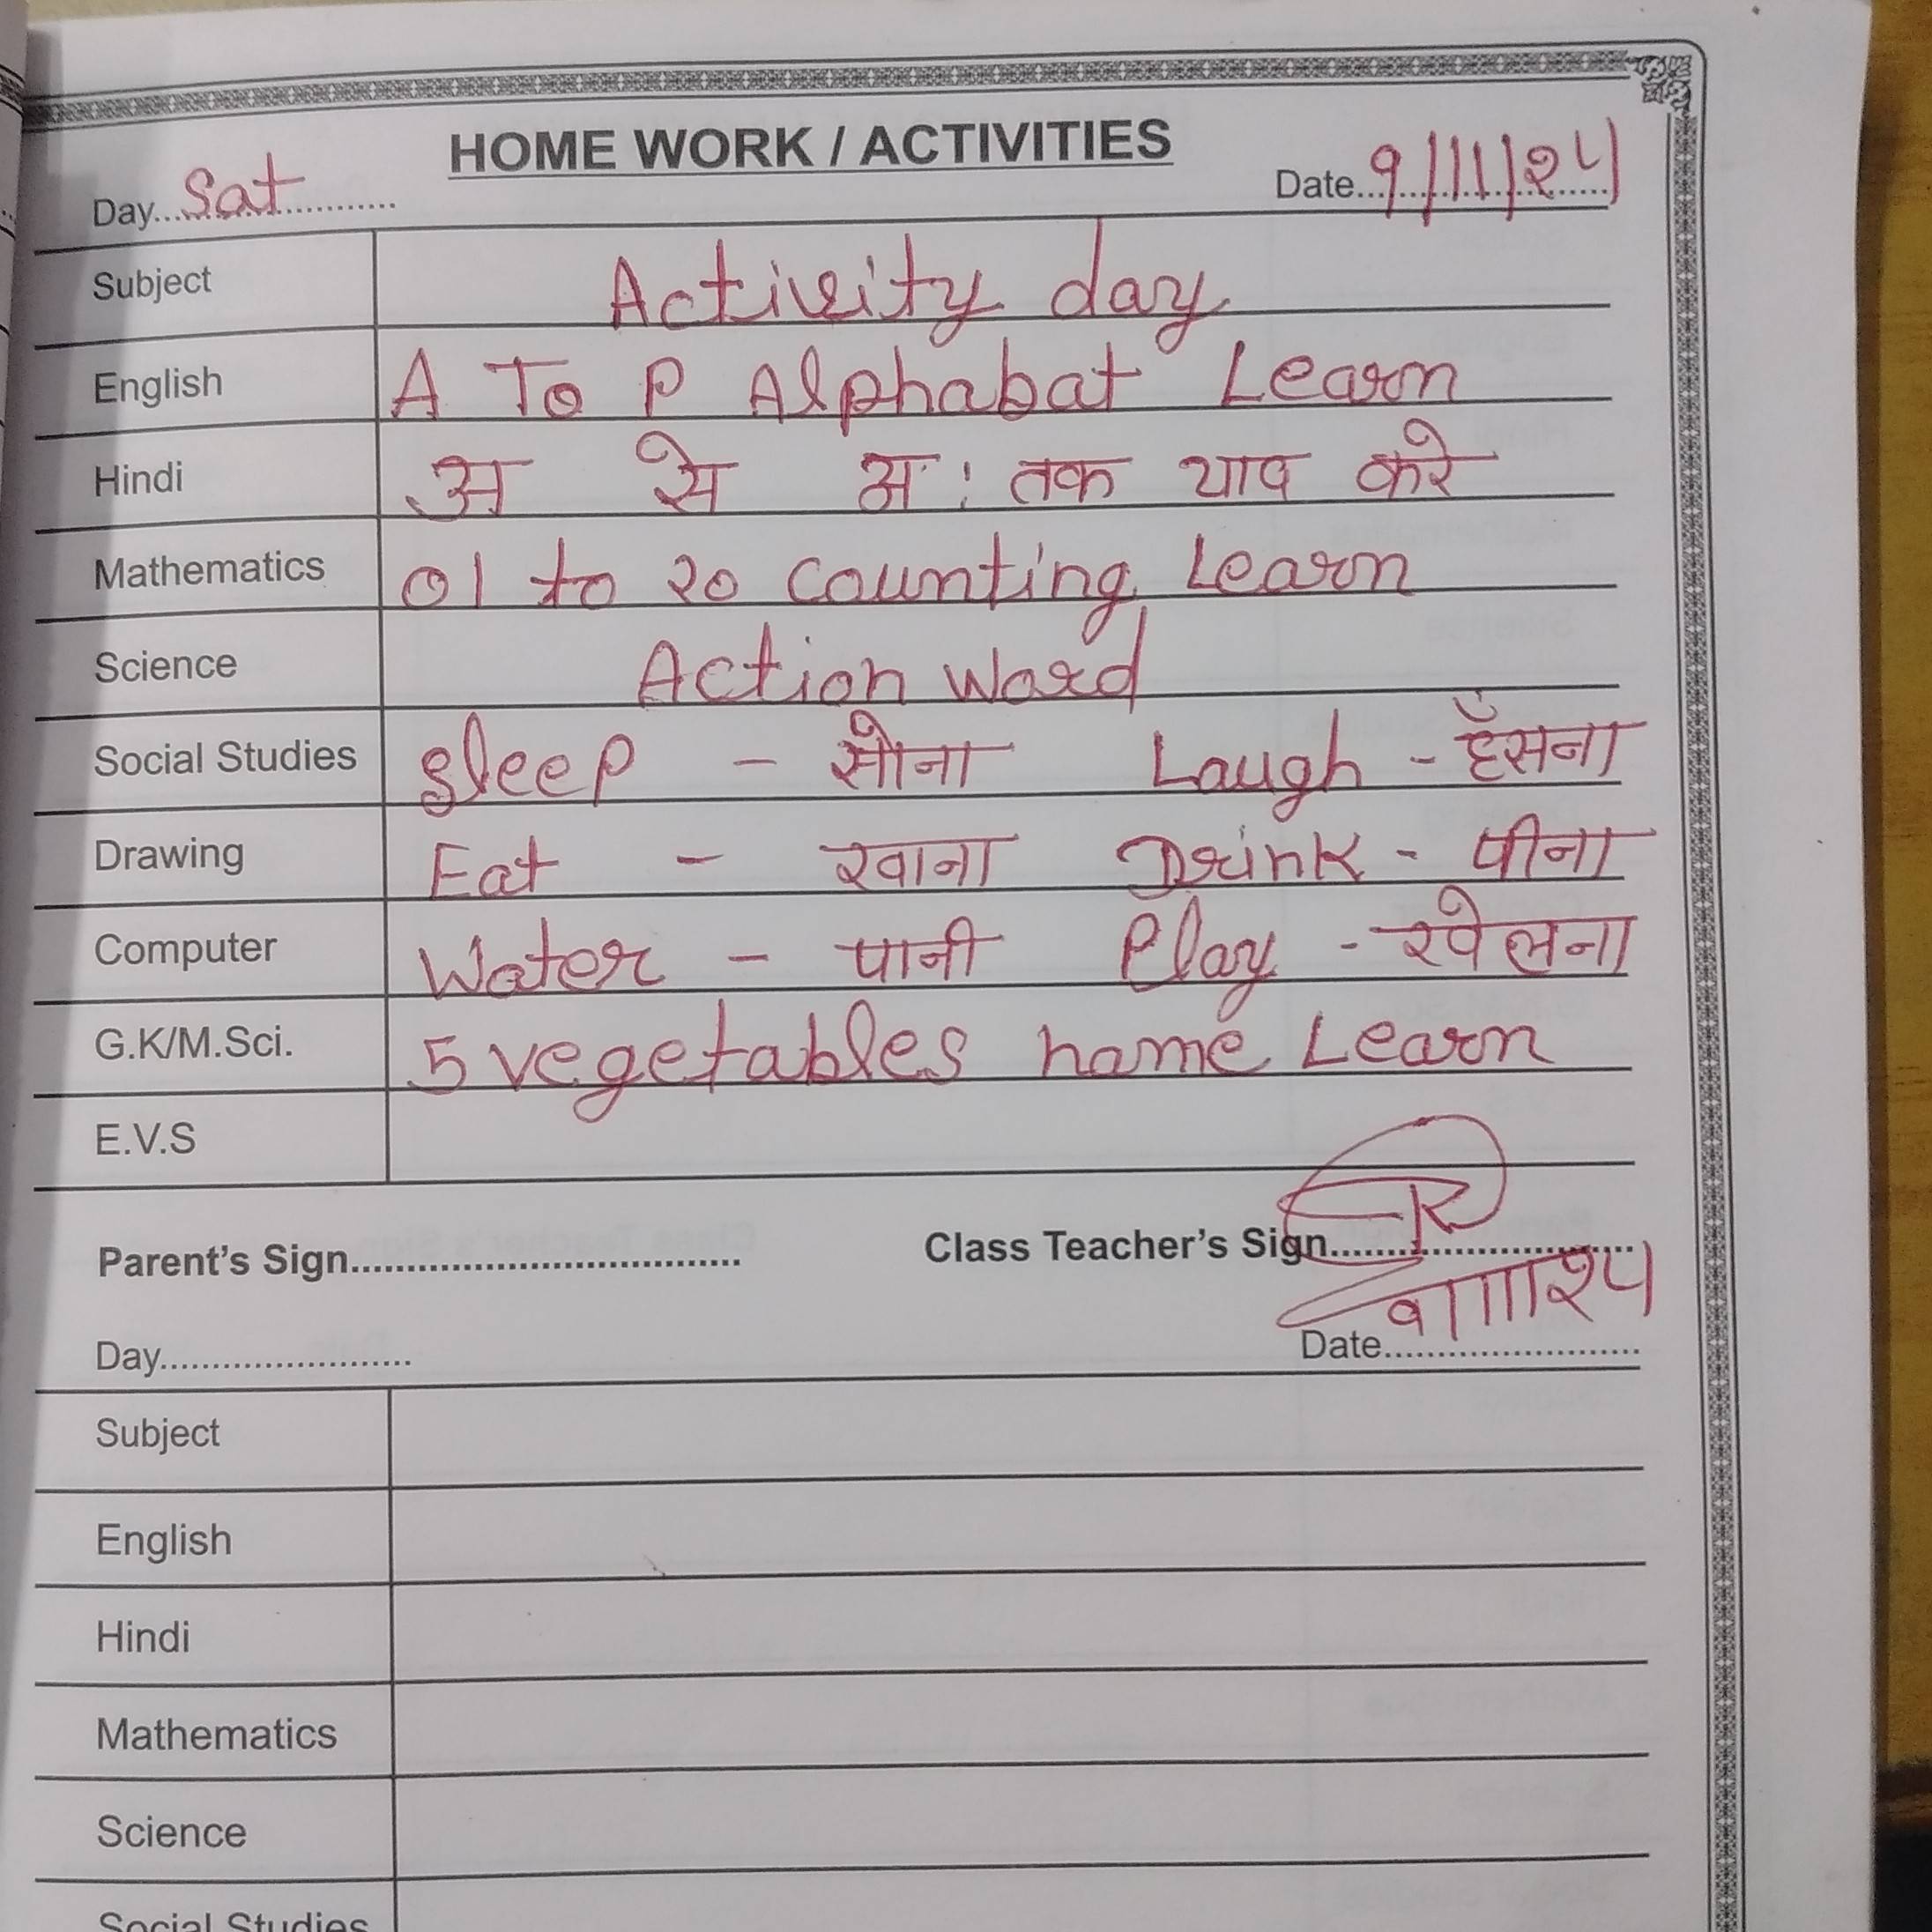 HOME WORK / ACTIVITIES
Day...Sat............... Date...9/11/24
Subject Activity day
English A To P Alphabat Learn
Hindi अ से अ: तक याद करे
Mathematics 01 to 20 counting Learn
Science Action word
Social Studies Sleep - सोना Laugh - हँसना
Drawing Eat - खाना Drink - पीना
Computer Water - पानी Play - खेलना
G.K/M.Sci. 5 vegetables name Learn
E.V.S
Parent's Sign................................... Class Teacher's Sign...........................
9/11/24
Day........................ Date........................
Subject
English
Hindi
Mathematics
Science
Social Studies